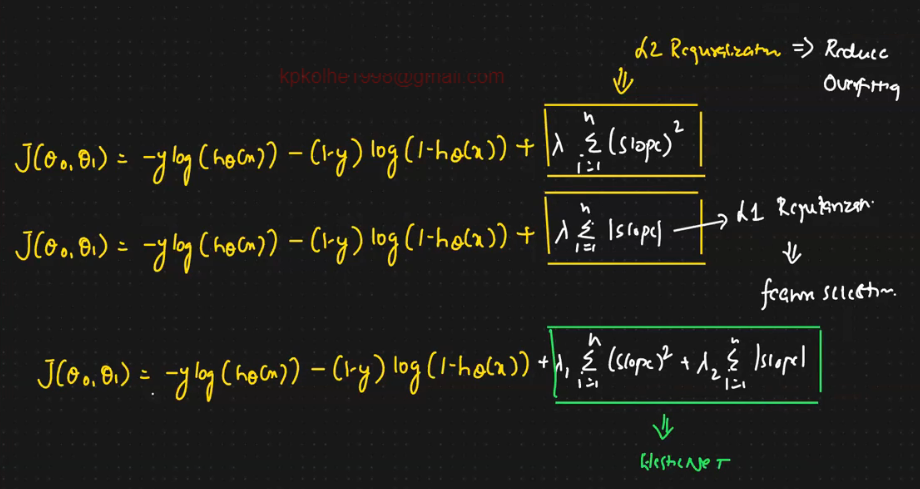 L2 Regularization => Reduce
Overfitting
kpkolhe1998@gmail.com
J(θ0, θ1) = -y log(hθ(x)) - (1-y) log(1-hθ(x)) + λ Σ_{i=1}^{n} (slope)^2
J(θ0, θ1) = -y log(hθ(x)) - (1-y) log(1-hθ(x)) + λ Σ_{i=1}^{n} |slope| → L1 Regularization.
⇓
feature selection.
J(θ0, θ1) = -y log(hθ(x)) - (1-y) log(1-hθ(x)) + λ1 Σ_{i=1}^{n} (slope)^2 + λ2 Σ_{i=1}^{n} |slope|
⇓
ElasticNet